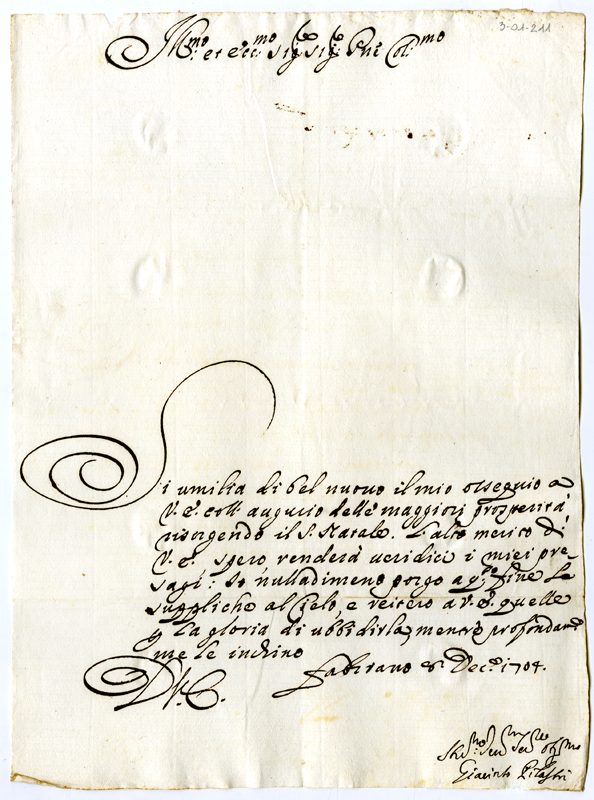 3-01-211
Ill.mo et Ecc.mo Sig.re Sig.re Pne Col.mo
Si umilia di bel nuovo il mio ossequio a
V.E. coll' augurio delle maggiori prosperità
risorgendo il S. Natale. L'alto merito di
V.E. spero, renderà veridici i miei pre-
sagi: Io nulladimeno porgo a q.to fine le
suppliche al Cielo, e reitero a V.E. quelle
p la gloria di ubbidirla, mentre profondam.te
me le inchino
D.V.E. Fabriano Dec.e 1704.
Giacinto Pilastri